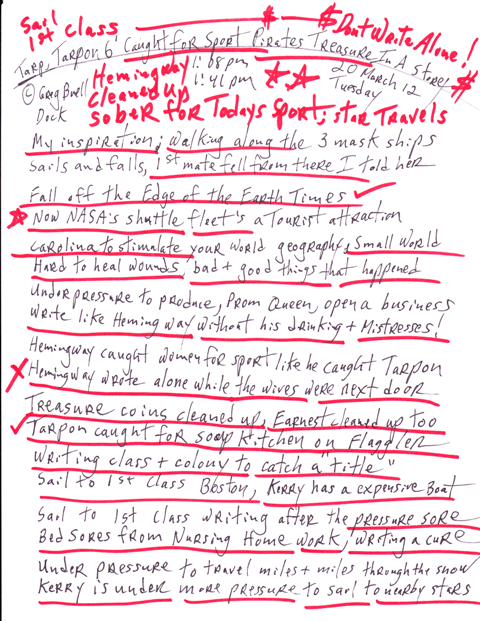 Sail
1st Class
$ $ Dont Write Alone!
Tarp, Tarpon 6' Caught for Sport Pirates Treasure In A Store!
© Greg Buell
Dock
Hemingway
Cleaned up
1:08 pm
1:41 pm
20 March 12
Tuesday
$
Sober for Todays Sport; Star Travels
My inspiration; Walking along the 3 mask ships
Sails and falls, 1st mate fell from there I told her
Fall off the Edge of the Earth Times
Now NASA's shuttle fleet's a Tourist attraction
Carolina to stimulate your world geography, Small World
Hard to heal wounds, bad + good things that happened
Under pressure to produce, Prom Queen, open a business
Write like Hemingway without his drinking + Mistresses!
Hemingway caught women for sport like he caught Tarpon
Hemingway wrote alone while the wives were next door
Treasure coins cleaned up, Earnest cleaned up too
Tarpon caught for soup kitchen on Flaggler
Writing class + colony to catch a "title"
Sail to 1st Class Boston, Kerry has a expensive Boat
Sail to 1st Class writing after the pressure sore
Bed Sores from Nursing Home work, writing a cure
Under pressure to travel miles + miles through the snow
Kerry is under more pressure to sail to nearby stars